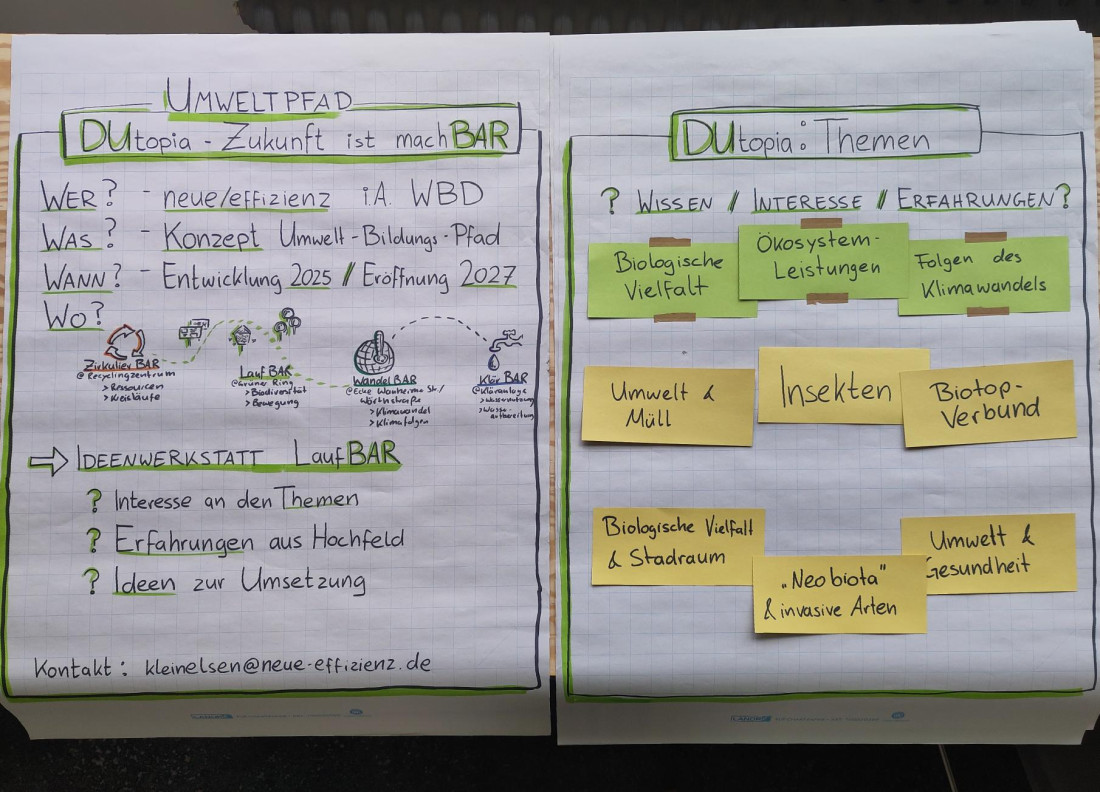 UMWELTPFAD
DUtopia - Zukunft ist machBAR
WER? - neue/effizienz i.A. WBD
WAS? - Konzept Umwelt-Bildungs-Pfad
WANN? - Entwicklung 2025 // Eröffnung 2027
WO?
Zirkulier BAR
@Recyclingzentrum
> Ressourcen
> Kreisläufe
Lauf BAR
@Grüner Ring
> Biodiversität
> Bewegung
Wandel BAR
@Ecke Wanheimer Str./
Wörthstraße
> Klimawandel
> Klimafolgen
Klär BAR
@Kläranlage
> Wassernutzung
> Wasser-
aufbereitung
⇒ IDEENWERKSTATT LaufBAR
? Interesse an den Themen
? Erfahrungen aus Hochfeld
? Ideen zur Umsetzung
Kontakt: kleinelsen@neue-effizienz.de
DUtopia: Themen
? WISSEN // INTERESSE // ERFAHRUNGEN?
Biologische
Vielfalt
Ökosystem-
Leistungen
Folgen des
Klimawandels
Umwelt &
Müll
Insekten
Biotop-
Verbund
Biologische Vielfalt
& Stadraum
„Neobiota"
& invasive Arten
Umwelt &
Gesundheit